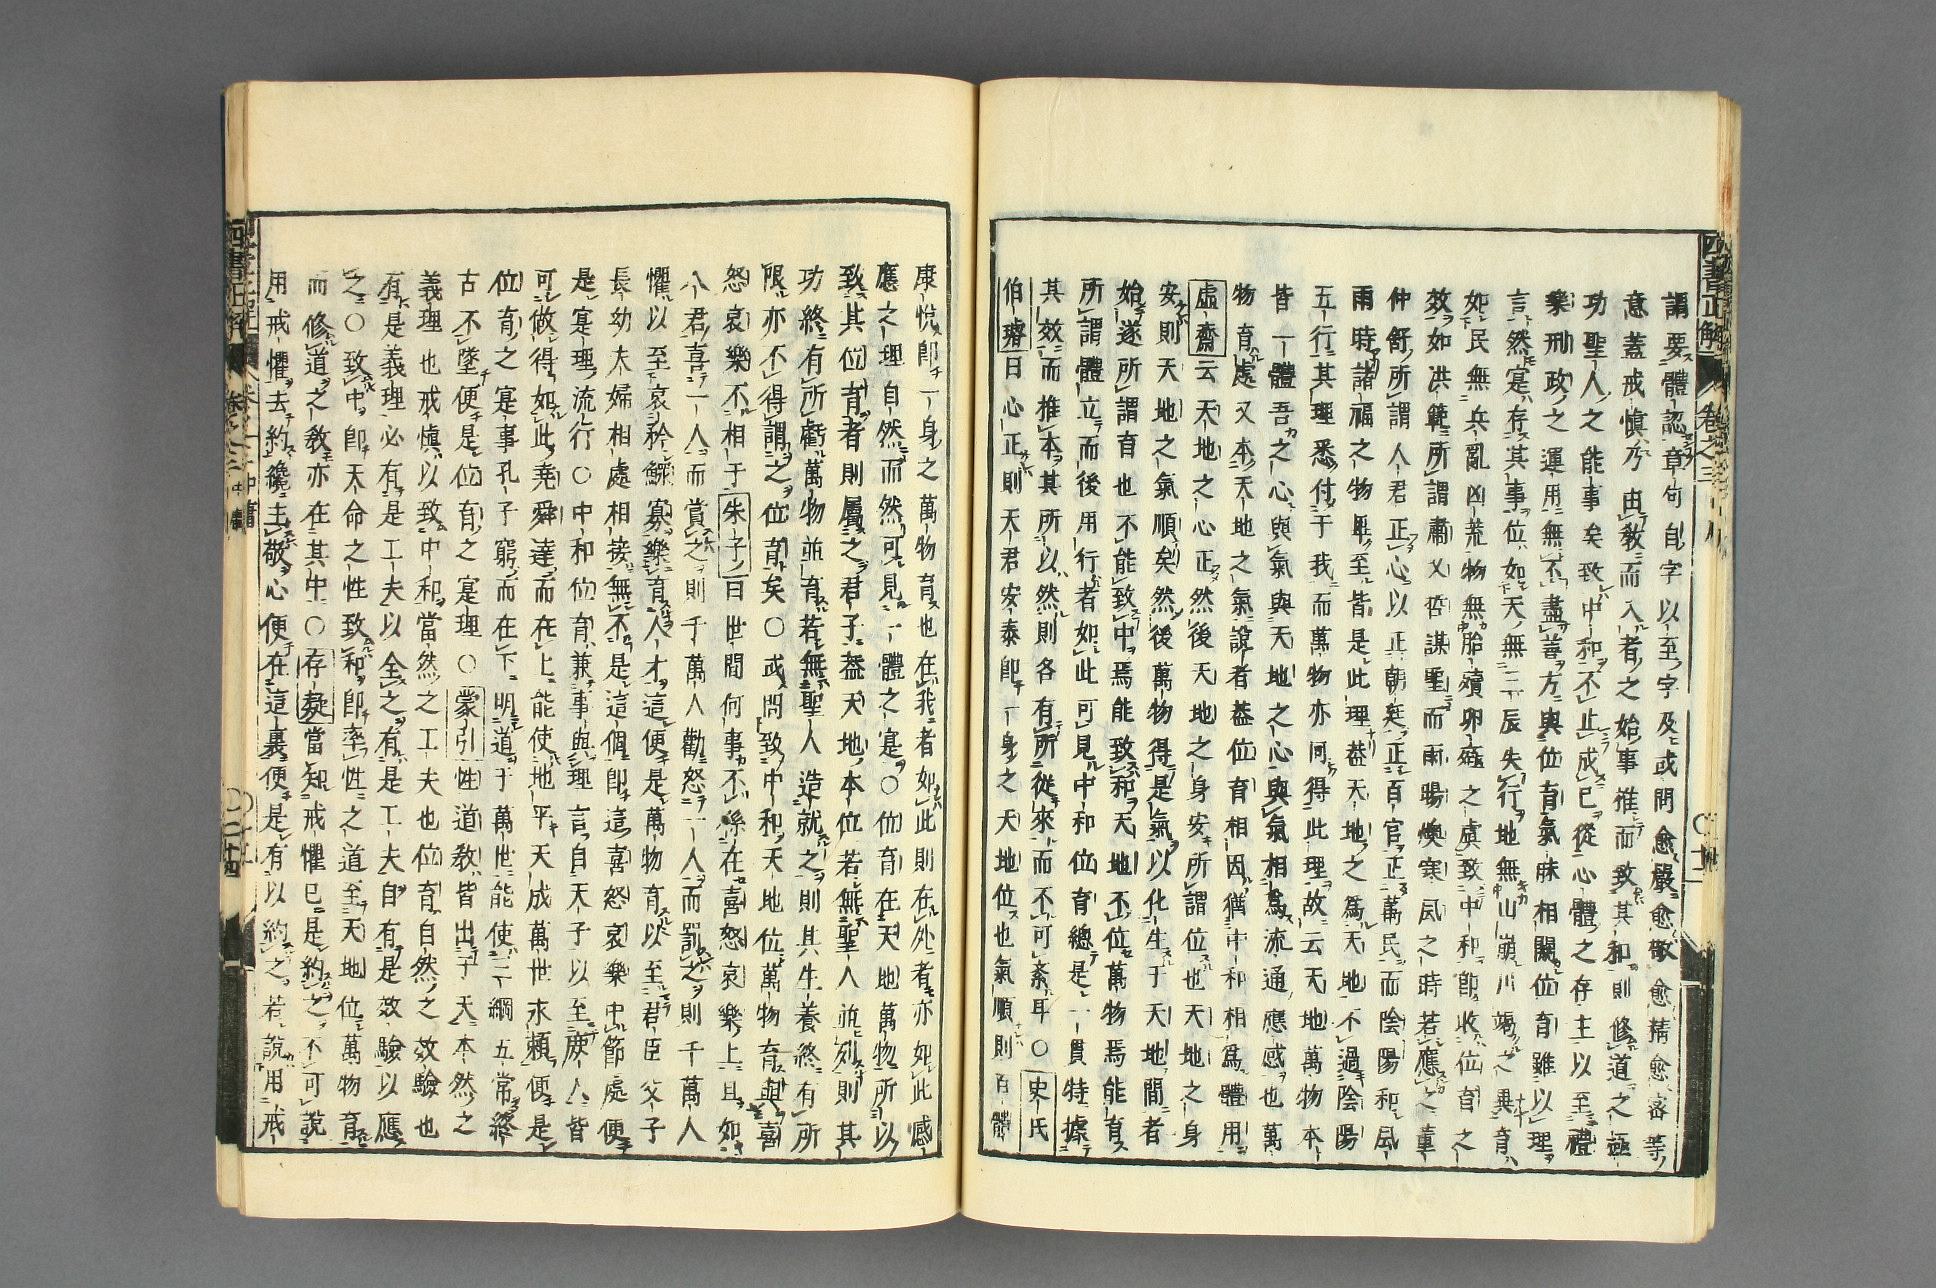 謂要體認章句自字以至字及或問愈嚴愈敬愈精愈密等
意蓋戒愼乃由教而入者之始事推而致其和則修道之極
功聖人之能事矣致中和不止成已從心體之存主以至禮
樂刑政之運用無不盡善方與位育氣脉相關位育雖以理
言然寔存其事位如天無二辰失行地無山崩川竭之異育
如民無兵亂凶荒物無胎殰卵殈之虞致中和卽收位育之
效如洪範所謂肅乂哲謀聖而雨暘燠寒風之時若應之董
仲舒所謂人君正心以正朝廷正百官正萬民而陰陽和風
雨時諸福之物畢至皆是此理葢天地之爲天地不過陰陽
五行其理悉付于我而萬物亦同得此理故云天地萬物本
皆一體吾之心與氣與天地之心與氣相爲流通應感也萬
物育處又本天地之氣說者葢位育相因猶中和相爲體用
虛齋云天地之心正然後天地之身安所謂位也天地之身
安則天地之氣順矣然後萬物得是氣以化生于天地間者
始遂所謂育也不能致中焉能致和天地不位萬物焉能育
所謂體立而後用行者如此可見中和位育總是一貫特據
其效而推本其所以然則各有所從來而不可紊耳○史氏
伯璿曰心正則天君安泰卽一身之天地位也氣順則百體
康悅卽一身之萬物育也在我者如此則在處者亦如此感
應之理自然而然可見一體之寔○位育在天地萬物所以
致其位育者則屬之君子葢天地本位若無聖人竝列則其
功終有所虧萬物並育若無聖人造就之則其生養終有所
限亦不得謂之位育矣○或問致中和天地位萬物育與喜
怒哀樂不相于朱子曰世間何事不係在喜怒哀樂上且如
人君喜一人而賞之則千萬人勸怒一人而罰之則千萬人
懼以至哀矜鰥寡樂育人才這便是萬物育以至君臣父子
長幼夫婦相處相接無不是這個卽這喜怒哀樂中節處便
是寔理流行○中和位育兼事與理言自天子以至庶人皆
可做得如此堯舜達而在上能使地平天成萬世永賴便是
位育之寔事孔子窮而在下明道于萬世能使三綱五常終
古不墜便是位育之寔理○蒙引性道教皆出于天本然之
義理也戒愼以致中和當然之工夫也位育自然之效驗也
有是義理必有是工夫以全之有是工夫自有是效驗以應
之○致中卽天命之性致和卽率性之道至天地位萬物育
而修道之教亦在其中○存疑當知戒懼已是約之不可說
用戒懼去約纔主敬心便在這裏便是有以約之若說用戒